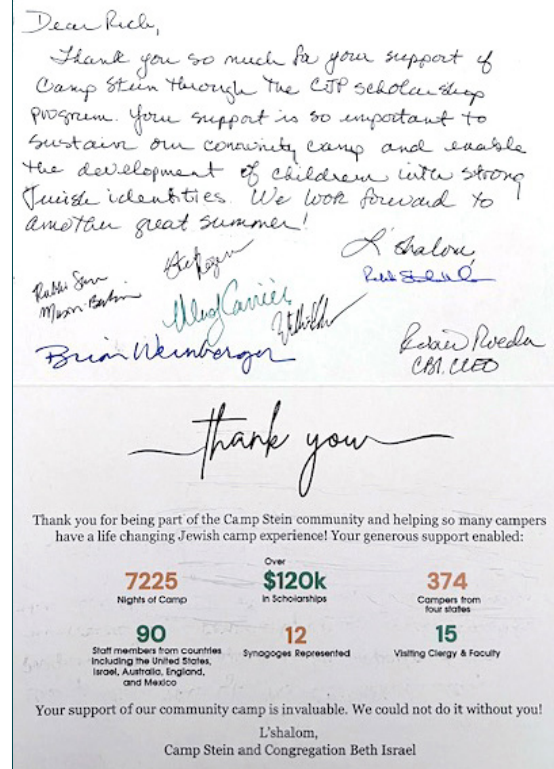 Dear Rich,
Thank you so much for your support of
Camp Stein through the CJP scholarship
program. Your support is so important to
sustain our community camp and enable
the development of children with strong
Jewish identities. We look forward to
another great summer!
L'shalom,
Rabbi
Brian Weinberger
CBI, CEO
thank you
Thank you for being part of the Camp Stein community and helping so many campers
have a life changing Jewish camp experience! Your generous support enabled:
7225
Nights of Camp
Over
$120k
in Scholarships
374
Campers from
four states
90
Staff members from countries
including the United States,
Israel, Australia, England,
and Mexico
12
Synagoges Represented
15
Visiting Clergy & Faculty
Your support of our community camp is invaluable. We could not do it without you!
L'shalom,
Camp Stein and Congregation Beth Israel